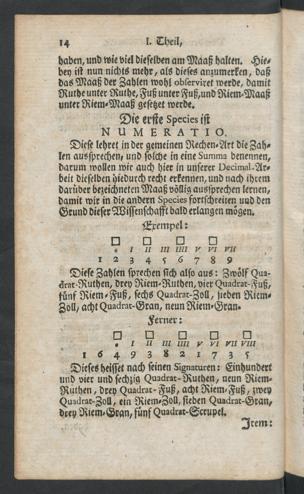 14 I. Theil,
haben, und wie viel dieselben am Maaß halten. Hie-
bey ist nun nichts mehr, als dieses anzumerken, daß
das Maaß der Zahlen wohl observiret werde, damit
Ruthe unter Ruthe, Fuß unter Fuß, und Riem-Maaß
unter Riem-Maaß gesetzet werde.
Die erste Species ist
NUMERATIO.
Diese lehret in der gemeinen Rechen-Art die Zah-
len aussprechen, und solche in eine Summa benennen,
darum wollen wir auch hier in unserer Decimal-Ar-
beit dieselben hiedurch recht erkennen, und nach ihrem
darüber bezeichneten Maaß völlig aussprechen lernen,
damit wir in die andern Species fortschreiten und den
Grund dieser Wissenschafft bald erlangen mögen.
Exempel:
□ □ □ □
° I II III IIII V VI VII
1 2 3 4 5 6 7 8 9
Diese Zahlen sprechen sich also aus: Zwölf Qua-
drat-Ruthen, drey Riem-Ruthen, vier Quadrat-Fuß,
fünf Riem-Fuß, sechs Quadrat-Zoll, sieben Riem-
Zoll, acht Quadrat-Gran, neun Riem-Gran.
Ferner:
□ □ □ □ □
° I II III IIII V VI VII VIII
1 6 4 9 3 8 2 1 7 3 5
Dieses heisset nach seinen Signaturen: Einhundert
und vier und sechzig Quadrat-Ruthen, neun Riem-
Ruthen, drey Quadrat-Fuß, acht Riem-Fuß, zwey
Quadrat-Zoll, ein Riem-Zoll, sieben Quadrat-Gran,
drey Riem-Gran, fünf Quadrat-Scrupel.
Item: